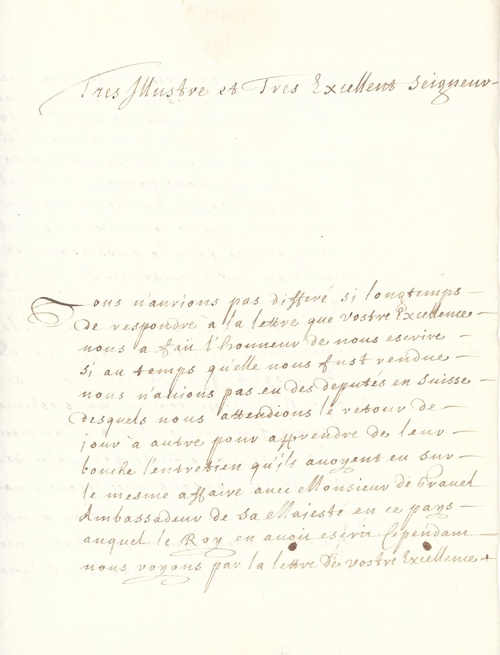 Tres Illustre et Tres Excellent Seigneur
Nous n'aurions pas differé si longtemps
de respondre a la lettre que vostre Excellence
nous a fait l'honneur de nous escrire
si au temps qu'elle nous fust rendue
nous n'auions pas eu des deputés en Suisse
desquels nous attendions le retour de
jour a autre pour apprendre de leur
bouche l'entretien qu'ils auoyent eu sur
le mesme affaire auec Monsieur de Grauel
Ambassadeur de Sa Majesté en ce pays
auquel le Roy en auoit escrit Cependant
nous voyons par la lettre de vostre Excellence